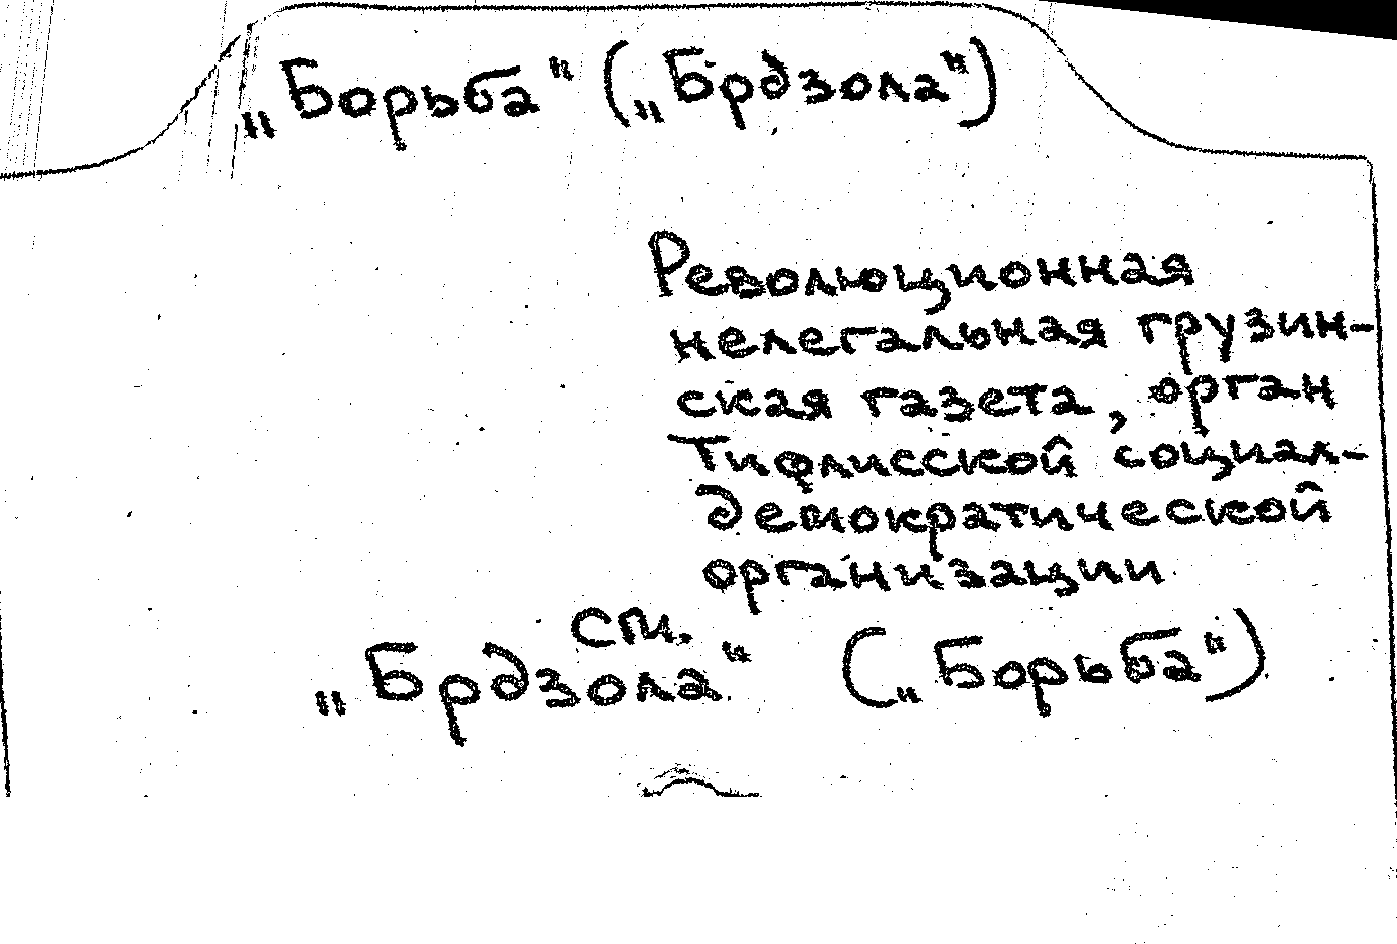 „Борьба“ („Брдзола“)
Революционная
нелегальная грузин-
ская газета, орган
Тифлисской социал-
демократической
организации
см.
„Брдзола“ („Борьба“)